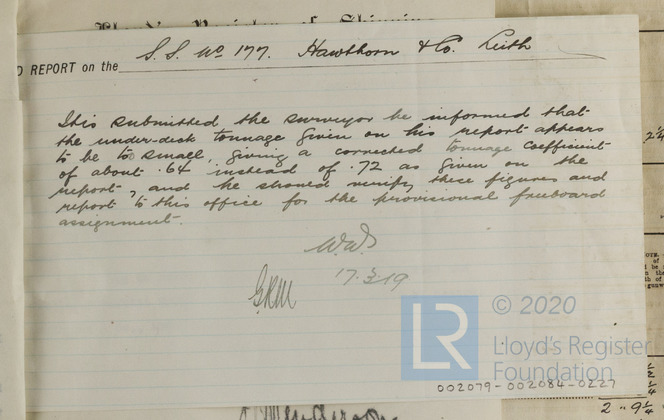 Lloyd's Register of Shipping
REPORT on the S.S. No 177. Hawthorn & Co. Leith
It is submitted the surveyor be informed that
the under-deck tonnage given on his report appears
to be to small, giving a corrected tonnage coefficient
of about .64 instead of .72 as given on the
report, and he should verify these figures and
report to this office for the provisional freeboard
assignment.
W.W.
17.3.19
GRM
LR © 2020
Lloyd's Register
Foundation
002079-002084-0227